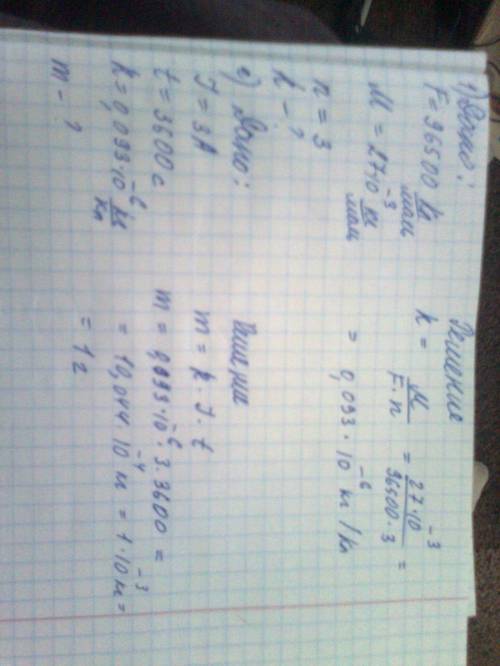 1) Дано:
F = 96500 Кл/моль
M = 27·10⁻³ кг/моль
n = 3
k – ?
Решение
k = M/(F·n) = 27·10⁻³/(96500·3) =
= 0,093·10⁻⁶ кг/Кл
2) Дано:
J = 3А
t = 3600 с
k = 0,093·10⁻⁶ кг/Кл
m – ?
Решение
m = k·J·t
m = 0,093·10⁻⁶·3·3600 =
= 10,044·10⁻⁴ кг = 1·10⁻³ кг =
= 1 г